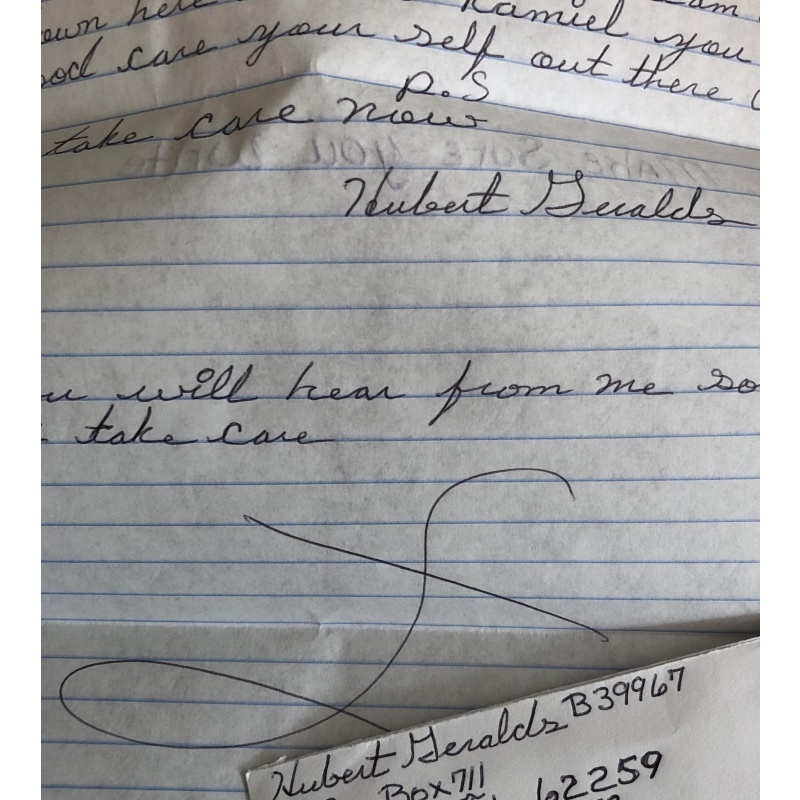 own here Kamiel you am
ood care your self out there
P.S
take care now
make sure you write
Hubert Geralds
u will hear from me so
take care
Hubert Geralds B39967
Box 711
62259